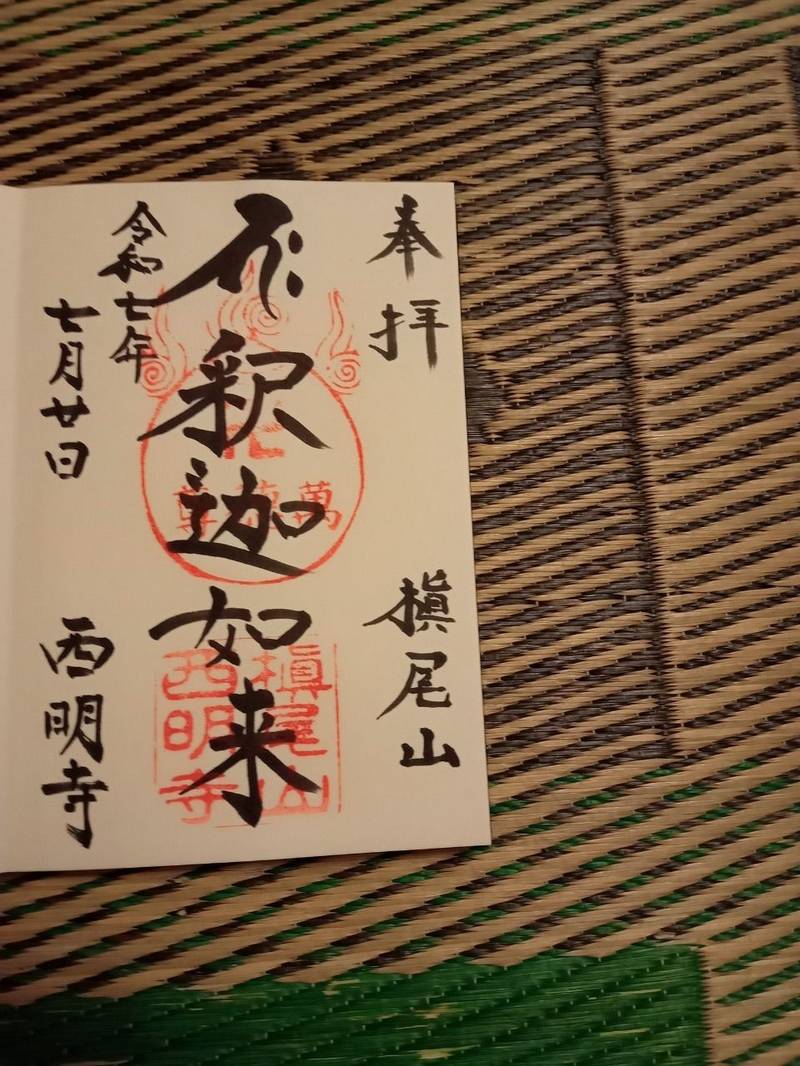 奉拝 槇尾山
釈迦如来
令和七年
七月廿日 西明寺
槇尾山
西明寺